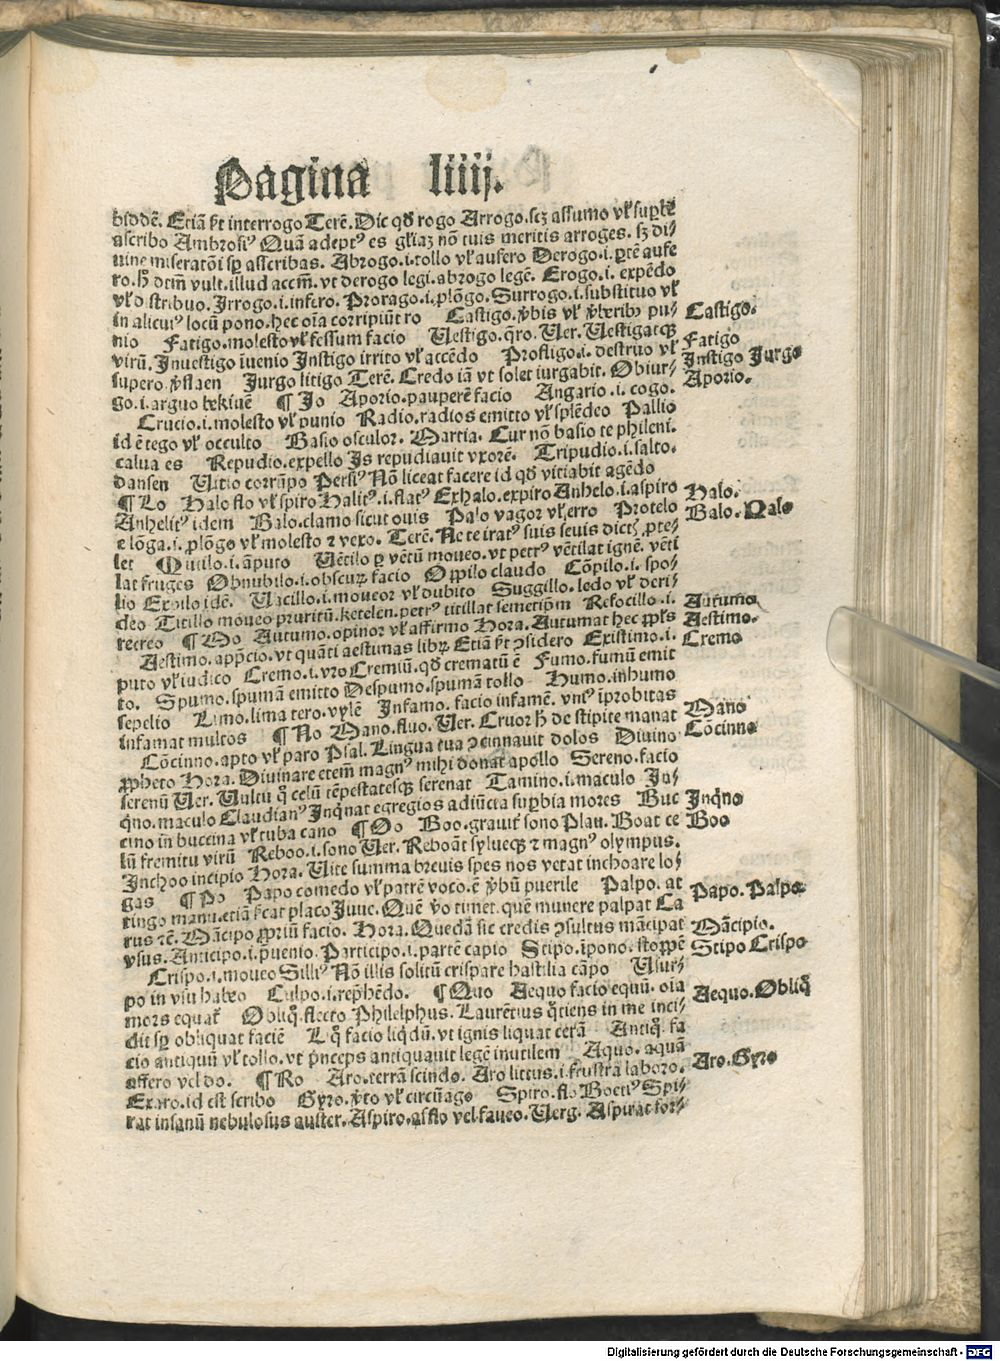 Pagina liiij.
biddē. Etiā st interrogo Terē. Dic qđ rogo Arrogo. scꝫ assumo vł supbe
ascribo Ambrosiꝰ Quā adeptꝰ es gliaꝫ nō tuis meritis arroges. sꝫ di⸗
uine miseratōi sp ascribas. Abrogo. i. tollo vł aufero Derogo. i. ptē aufe
ro. H dcm vult. illud accm. vt derogo legi. abrogo legē. Erogo. i. expēdo
vł distribuo. Irrogo. i. infero. Prorago. i. plōgo. Surrogo. i. substituo vł
in alicuiꝰ locū pono. hec oīa corripiūt ro Castigo. v̄bis vł v̄beribꝫ pu⸗ Castigo.
nio Fatigo. molesto vł fessum facio Uestigo. q̄ro. Uer. Uestigatqꝫ Fatigo
virū. Inuestigo īuenio Instigo irrito vł accēdo Profligo. i. destruo vł Instigo Jurgo
supero. v̄slaen Jurgo litigo Terē. Credo iā vt solet iurgabit. Obiur⸗ Aporio.
go. i. arguo bekiuē ¶ Jo Aporio. pauperē facio Angario. i. cogo.
Crucio. i. molesto vł punio Radio. radios emitto vł splēdeo Pallio
id ē tego vł occulto Basio osculor. Martia. Cur nō basio te phileni.
calua es Repudio. expello Is repudiauit vxorē. Tripudio. i. salto.
dansen Uitio corrūpo Persiꝰ Nō liceat facere id qđ vitiabit agēdo
¶ Lo Halo flo vł spiro Halitꝰ. i. flatꝰ Exhalo. expiro Anhelo. i. aspiro Halo.
Anhelitꝰ idem Balo. clamo sicut ouis Palo vagor vł erro Protelo Balo. Palo
e lōga. i. plōgo vł molesto ⁊ vexo. Terē. Ne te iratꝰ suis seuis dictꝭ pte⸗
let Mutilo. i. āputo Uētilo p vētū moueo. vt petrꝰ vētilat ignē. vēti
lat fruges Obnubilo. i. obscurꝫ facio Oppilo claudo Cōpilo. i. spo⸗
lio Expilo idē. Uacillo. i. moueor vł dubito Suggillo. ledo vł deri⸗
deo Titillo moueo pruritū. ketelen. petrꝰ titillat semetipm Refocillo. i. Autumo
recreo ¶ Mo Autumo. opinor vł affirmo Hora. Autumat hec Aestimo.
Aestimo. appcio. vt quāti aestumas librꝫ Etiā st ꝯsidero Existimo. i. Cremo
puto vł iudico Cremo. i. vro Cremiū. qđ crematū ē Fumo. fumū emit
to. Spumo. spumā emitto Despumo. spumā tollo Humo. inhumo
sepelio Limo. lima tero. vylē Infamo. facio infamē. vnꝰ īprobitas
infamat multos ¶ No Mano. fluo. Uer. Cruor H de stipite manat Mano
Cōcinno. apto vł paro Psal. Lingua tua ꝯcinnauit dolos Diuino Cōcinno
ppheto Hora. Diuinare etem magnꝰ mihi donat apollo Sereno. facio
serenū Uer. Uultu q̄ celū tēpestatesqꝫ serenat Tamino. i. maculo In⸗
q̄no. maculo Claudianꝰ Inq̄nat egregios adiūcta supbia mores Buc Inq̄no
cino in buccina vł tuba cano ¶ Oo Boo. grauit sono Plau. Boat ce Boo
lū fremitu virū Reboo. i. sono Uer. Reboāt syluęqꝫ ⁊ magnꝰ olympus.
Inchoo incipio Hora. Uite summa breuis spes nos vetat inchoare lō⸗
gas ¶ Po Papo comedo vł patrē voco. ē v̄bū puerile Palpo. at Papo. Palpo
tingo manu. etiā st placo Juue. Quē v̄o timet. quē munere palpat Ca
rus ⁊ē. Mācipo ppriū facio. Hora. Quedā sic credis ꝯsultus mācipat Mācipio.
vsus. Anticipo. i. puenio. Participo. i. partē capio Stipo. īpono. stoppē Stipo Crispo
Crispo. i. moueo Silliꝰ Nō illis solitū crispare hastilia cāpo Usur⸗
po in vsu habeo Culpo. i. rephēdo. ¶ Quo Aequo facio equū. oīa Aequo. Obliq̄
mors equat Obliq̄. flecto. Philelphus. Laurētius q̄tiens in me inci⸗
dit sp obliquat faciē Lq̄ facio liqdū. vt ignis liquat cerā Antiq̄. fa
cio antiquū vł tollo. vt p̄nceps antiquauit legē inutilem Aquo. aquā
affero vel do. ¶ Ro Aro. terrā scindo. Aro littus. i. frustra laboro. Aro. Gyro
Exaro. id est scribo Gyro. v̄to vł circūago Spiro. flo Boetiꝰ Spi⸗
rat insanū nebulosus auster. Aspiro. afflo vel faueo. Uerg. Aspirat
Digitalisierung gefördert durch die Deutsche Forschungsgemeinschaft - DFG